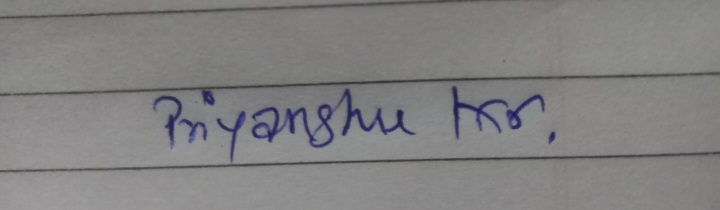 Priyanshu Kr.